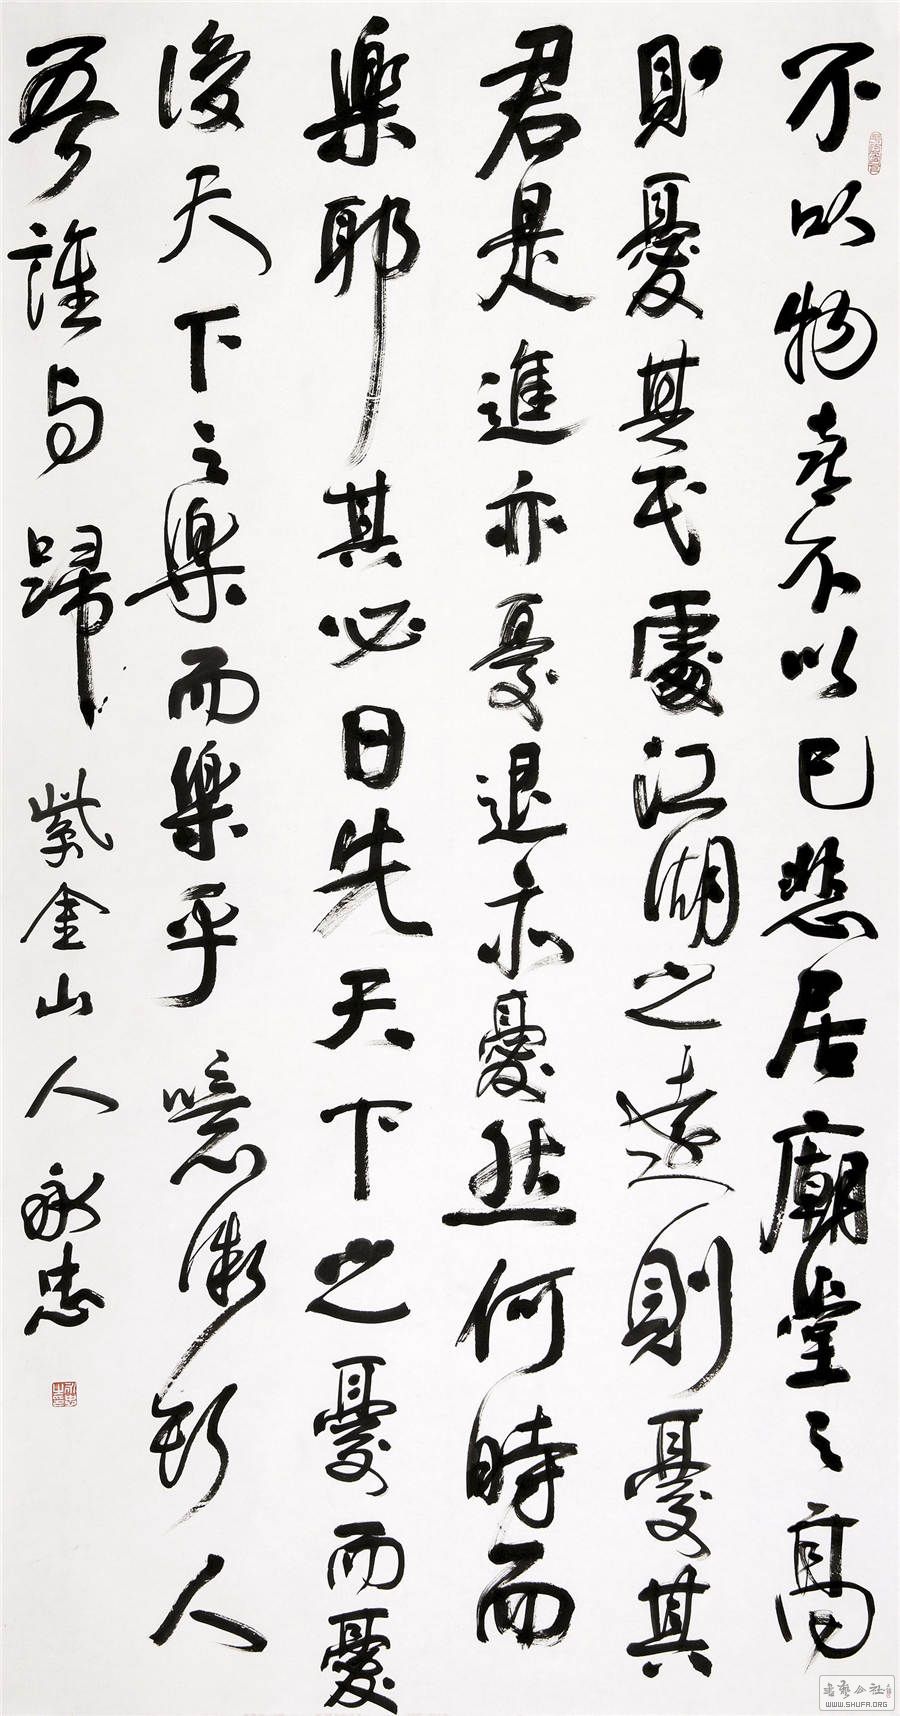 不以物喜不以己悲居廟堂之高
則憂其民處江湖之遠則憂其
君是進亦憂退亦憂然何時而
樂耶其必曰先天下之憂而憂
後天下之樂而樂乎噫微斯人
吾誰与歸 紫金山人永忠
书艺公社
WWW.SHUFA.ORG